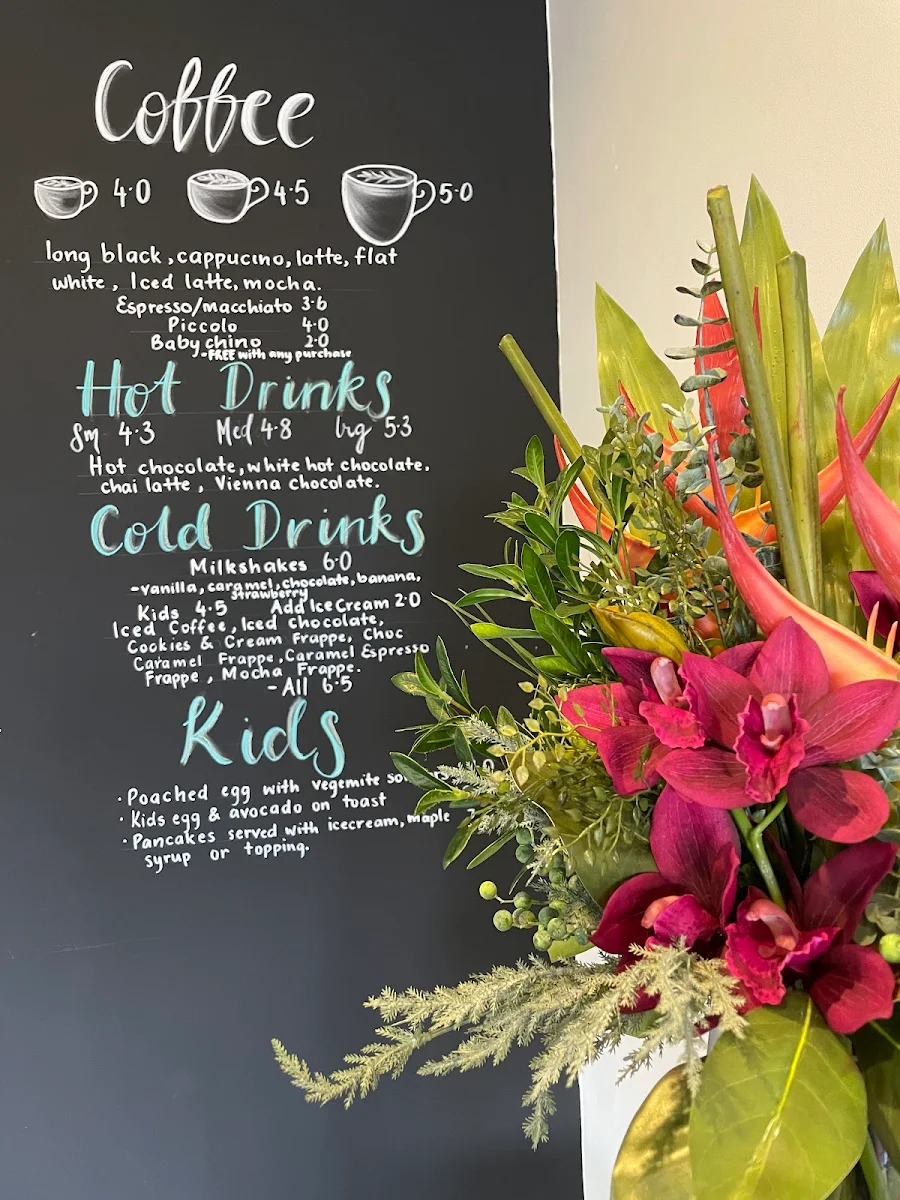 Coffee
4.0 4.5 5.0
long black, cappucino, latte, flat
white, Iced latte, mocha.
Espresso/macchiato 3.6
Piccolo 4.0
Baby chino 2.0
-FREE with any purchase
Hot Drinks
Sm 4.3 Med 4.8 Lrg 5.3
Hot chocolate, white hot chocolate,
chai latte, Vienna chocolate.
Cold Drinks
Milkshakes 6.0
-vanilla, caramel, chocolate, banana,
strawberry
Kids 4.5 Add Ice Cream 2.0
Iced Coffee, Iced chocolate,
Cookies & Cream Frappe, Choc
Caramel Frappe, Caramel Espresso
Frappe, Mocha Frappe.
- All 6.5
Kids
· Poached egg with vegemite
· Kids egg & avocado on toast
· Pancakes served with icecream, maple
syrup or topping.